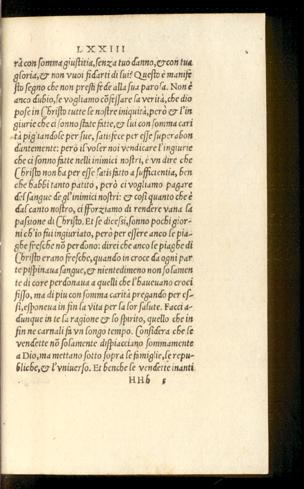 LXXIII
rà con somma giustitia, senza tuo danno, & con tua
gloria, & non vuoi fidarti di lui? Questo è manife
sto segno che non presti fede alla sua parola. Non è
anco dubio, se vogliamo cõfessare la verità, che dio
pose in Christo tutte le nostre iniquità, però & l'in
giurie che ci sonno state fatte, & lui con somma cari
tà pigliandole per sue, satisfece per esse superabon
dantemente: però il voler noi vendicare l'ingiurie
che ci sonno fatte nelli inimici nostri, è vn dire che
Christo non ha per esse satisfatto a sufficientia, ben
che habbi tanto patito, però ci vogliamo pagare
del sangue de gl'inimici nostri: & cosi quanto che è
dal canto nostro, ci sforziamo di rendere vana la
passione di Christo. Et se dicessi, sonno pochi gior-
ni ch'io fui ingiuriato, però per essere anco le pia-
ghe fresche nõ perdono: direi che anco le piaghe di
Christo erano fresche, quando in croce da ogni par
te pispinaua sangue, & nientedimeno non solamen
te di core perdonaua a quelli che l'haueuano croci
fisso, ma di piu con somma carità pregando per es-
si, esponeua in fin la vita per la lor salute. Facci a-
dunque in te la ragione & lo spirito, quello che in
fin ne carnali fa vn longo tempo. Considera che le
vendette nõ solamente dispiacciano sommamente
a Dio, ma mettano sotto sopra le famiglie, le repu-
bliche, & l'vniuerso. Et benche le vendette inanti
HHh